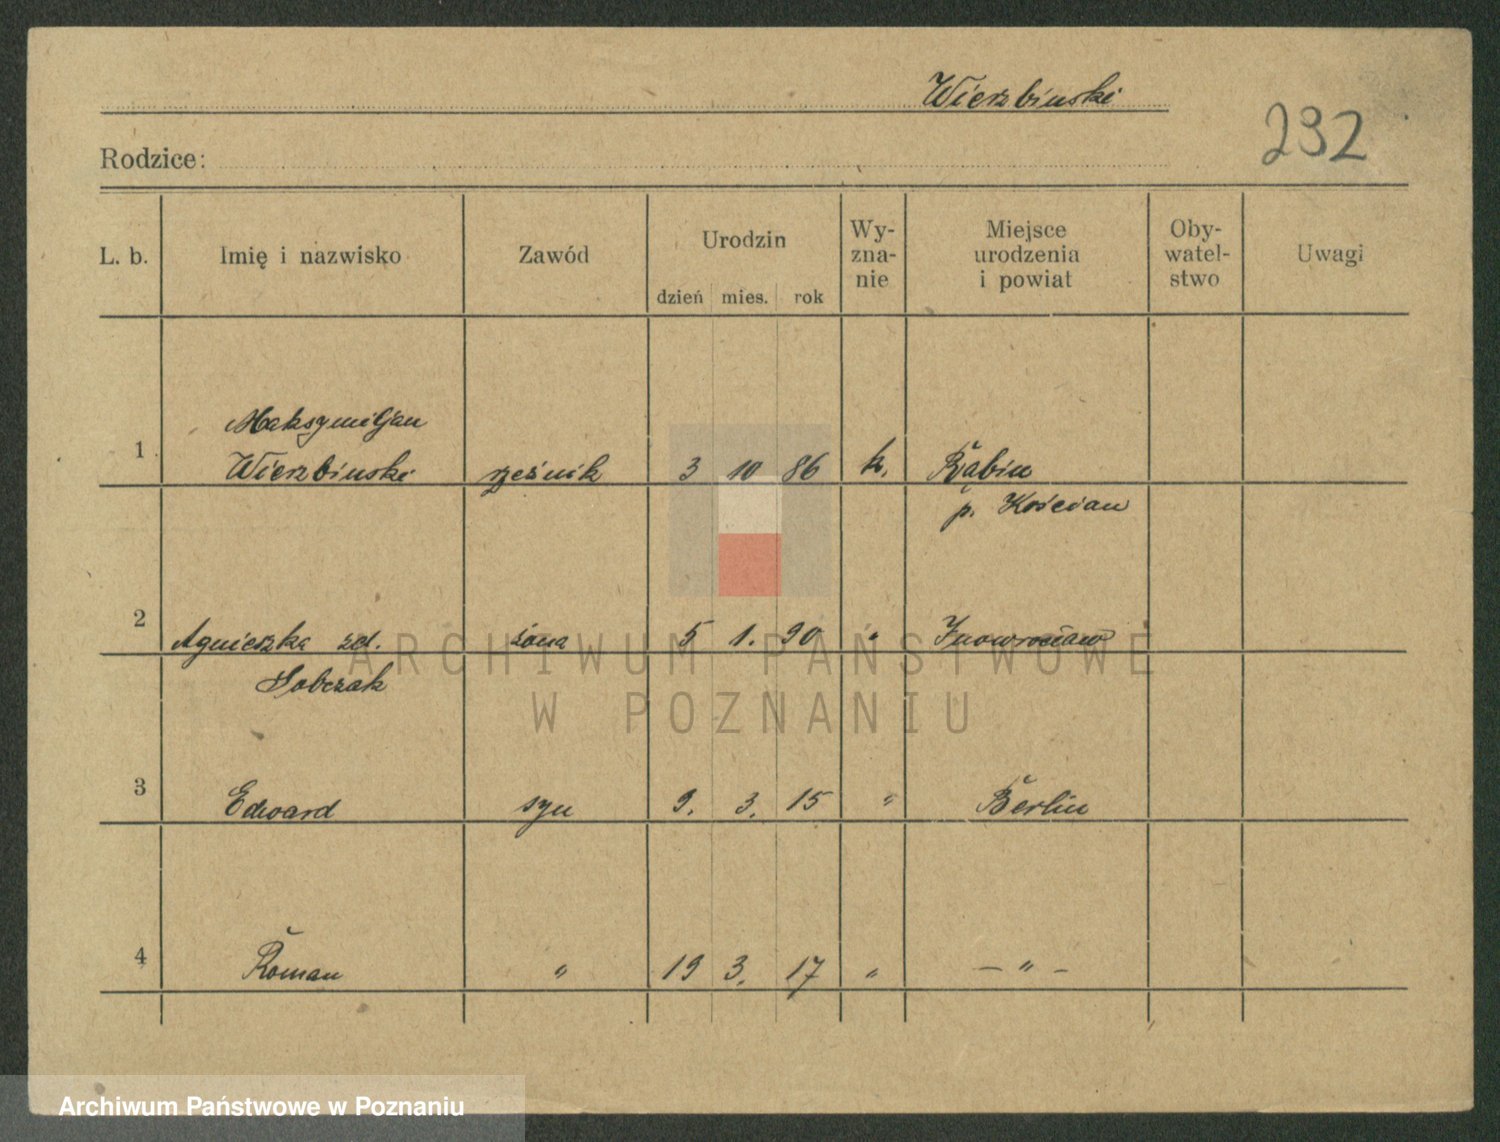 Wierzbinski
232
Rodzice:
L. b. Imię i nazwisko Zawód Urodzin Wy- Miejsce Oby- Uwagi
zna- urodzenia watel-
dzień mies. rok nie i powiat stwo
Maksymiljan
1 Wierzbinski rzeźnik 3 10 86 k. Rąbin
p. Kościan
2 Agnieszka zd. żona 5 1. 90 " Inowrocław
Sobczak
3 Edward syn 9. 3. 15 " Berlin
4 Roman " 19 3. 17 " — " —
ARCHIWUM PAŃSTWOWE
W POZNANIU
Archiwum Państwowe w Poznaniu